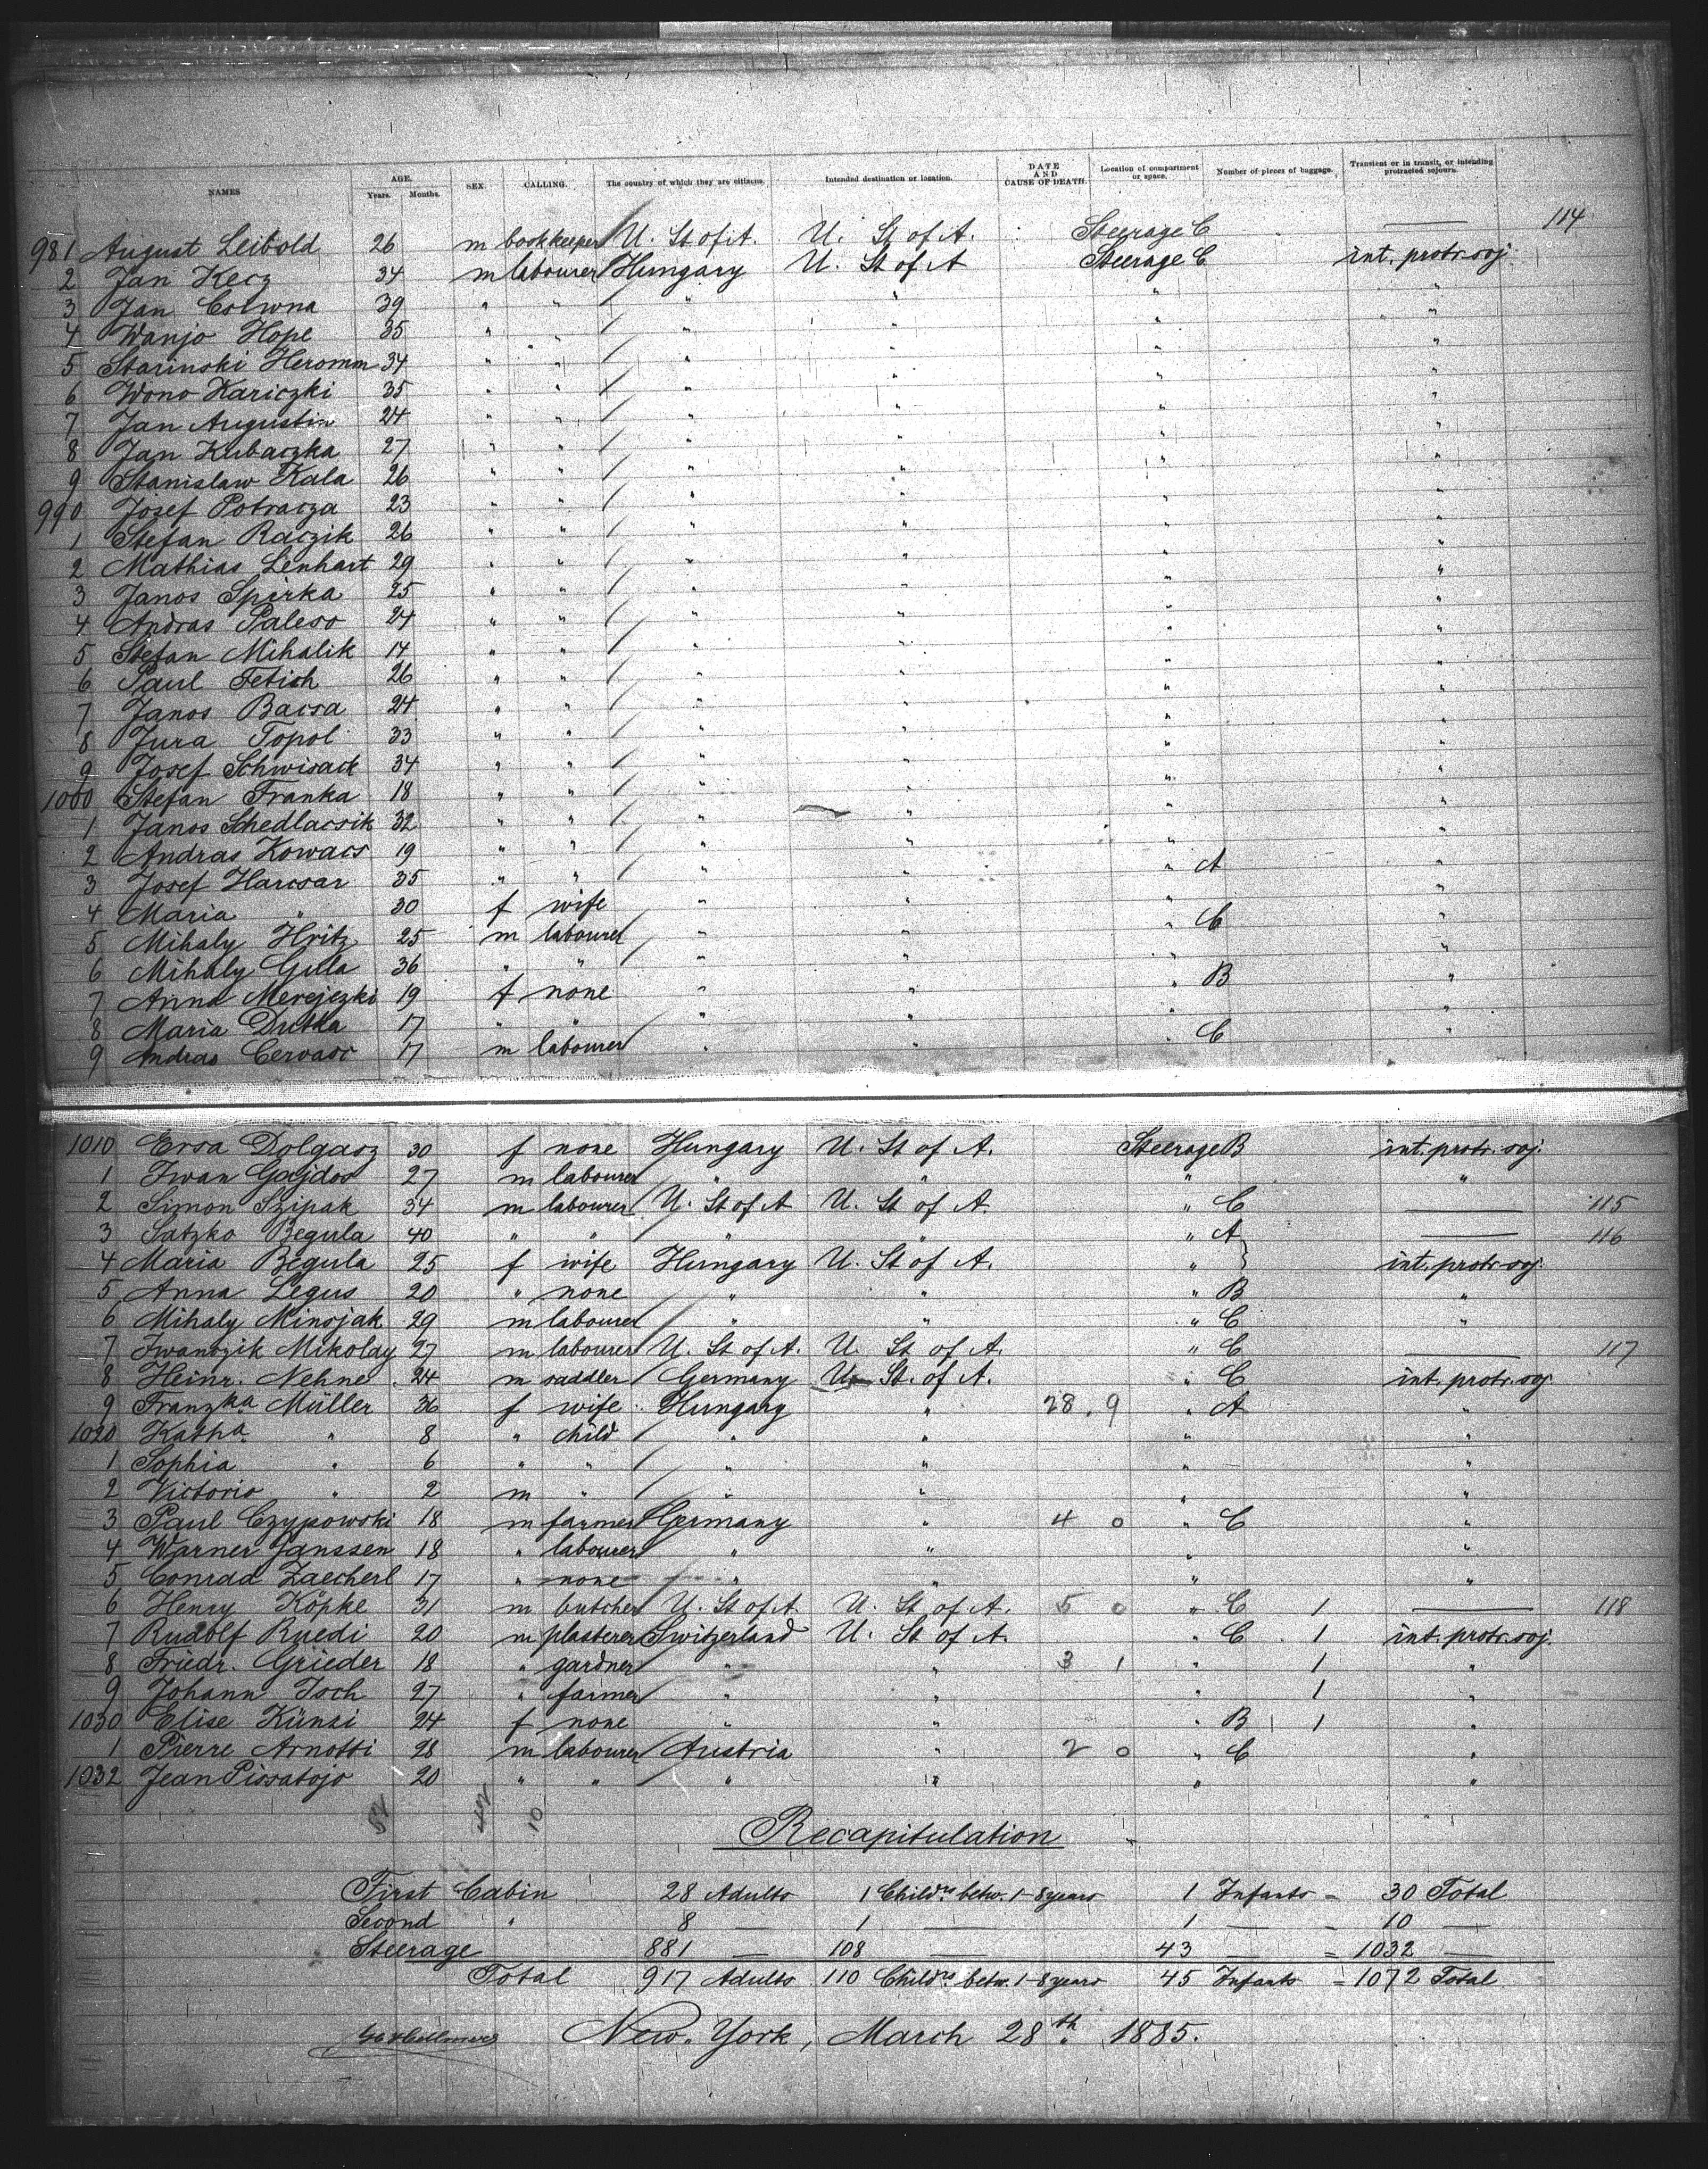 NAMES AGE. Years. Months. SEX. CALLING. The country of which they are citizens. Intended destination or location. DATE AND CAUSE OF DEATH. Location of compartment or space. Number of pieces of baggage. Transient or in transit, or intending protracted sojourn.
981 August Leibold 26 m bookkeeper U. St of A. U. St of A. Steerage C — 114
2 Jan Kecz 34 m labourer Hungary U. St of A Steerage C int. protr. soj.
3 Jan 39 " " " " " "
4 Wanjo Hope 35 " " " " " "
5 Starinski Heromm 34 " " " " " "
6 Wono Kariczki 35 " " " " " "
7 Jan Augustin 24 " " " " " "
8 Jan Kubaczka 27 " " " " " "
9 Stanislaw Kala 26 " " " " " "
990 Josef Potracza 23 " " " " " "
1 Stefan Raczik 26 " " " " " "
2 Mathias Lenhart 29 " " " " " "
3 Janos Spirka 25 " " " " " "
4 Andras Paleso 24 " " " " " "
5 Stefan Mihalik 14 " " " " " "
6 Paul Fetich 26 " " " " " "
7 Janos Bacsa 24 " " " " " "
8 Jura Topol 33 " " " " " "
9 Josef Schwisack 34 " " " " " "
1000 Stefan Franka 18 " " " " " "
1 Janos Schedlacsik 32 " " " " " "
2 Andras Kowacs 19 " " " " " "
3 Josef Harcsar 35 " " " " " A "
4 Maria " 30 f wife " " " "
5 Mihaly Hritz 25 m labourer " " " C "
6 Mihaly Gula 36 " " " " " "
7 Anna Merejezki 19 f none " " " B "
8 Maria Dutka 17 " " " " " "
9 Andras Cervasc 17 m labourer " " " C "
1010 Ersa Dolgasz 30 f none Hungary U. St of A. Steerage B int. protr. soj.
1 Iwan Gajdos 27 m labourer " " " "
2 Simon Szipak 34 m labourer U. St of A U. St of A. " C — 115
3 Satzko Begula 40 " " " " " A — 116
4 Maria Begula 25 f wife Hungary U. St of A. " int. protr. soj.
5 Anna Legus 20 " none " " " B "
6 Mihaly Minojak 29 m labourer " " " C "
7 Iwanczik Mikolay 27 m labourer U. St of A. U. St of A. " C — 117
8 Heinr. Nehne 24 m saddler Germany U. St. of A. " C int. protr. soj.
9 Franzka Müller 36 f wife Hungary " 28 . 9 " A "
1020 Katha " 8 " child " " " "
1 Sophia " 6 " " " " " "
2 Victorio " 2 m " " " " "
3 Paul Czypowski 18 m farmer Germany " 4 0 " C "
4 Warner Janssen 18 " labourer " " " "
5 Conrad Zaecherl 17 " none " " " "
6 Henry Köpke 31 m butcher U. St of A. U. St of A. 5 0 " C 1 — 118
7 Rudolf Ruedi 20 m plasterer Switzerland U. St of A. " C 1 int. protr. soj.
8 Friedr. Grieder 18 " gardner " " 3 1 " 1 "
9 Johann Isch 27 " farmer " " " 1 "
1030 Elise Künzi 24 f none " " " B 1 "
1 Pierre Arnotti 28 m labourer Austria " 2 0 " C "
1032 Jean Piosatojo 20 " " " " " "
10
Recapitulation
First Cabin 28 Adults 1 Childrs betw. 1-8 years 1 Infants = 30 Total
Second " 8 — 1 — 1 — = 10 —
Steerage 881 — 108 — 43 — = 1032 —
Total 917 Adults 110 Childrs betw. 1-8 years 45 Infants = 1072 Total
New-York, March 28th 1885.